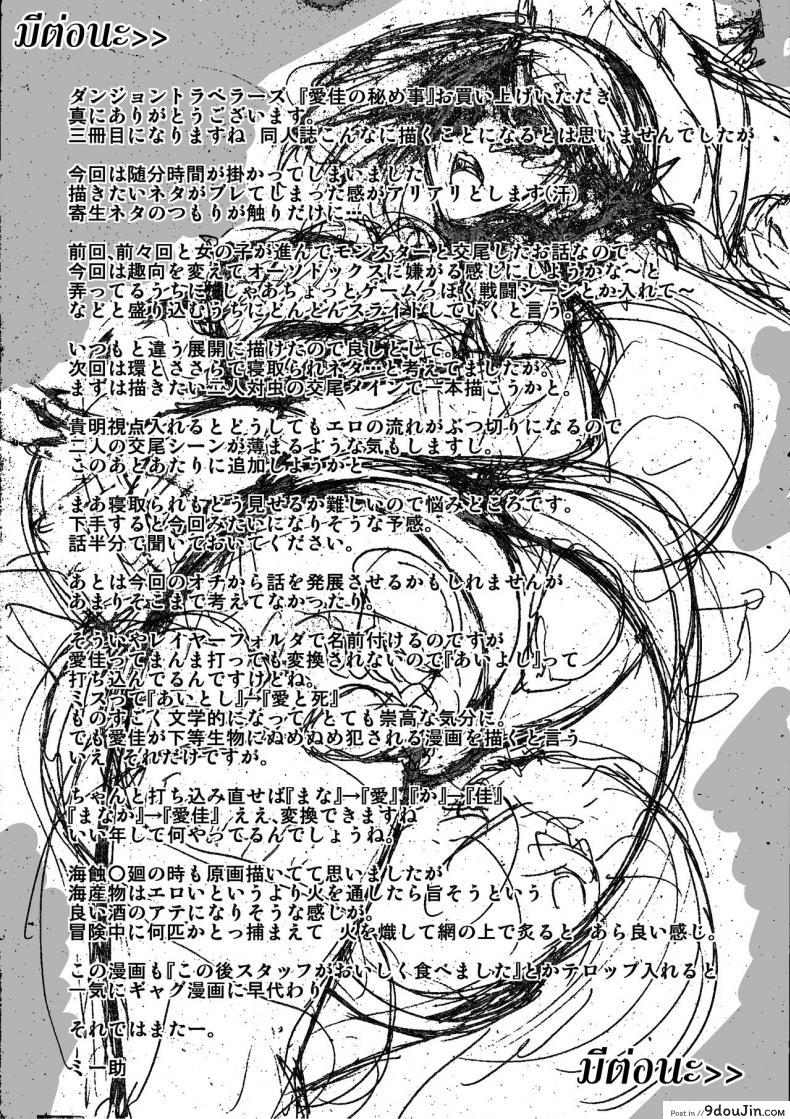 มีต่อนะ>>
ダンジョントラベラーズ『愛佳の秘め事』お買い上げいただき
真にありがとうございます。
三冊目になりますね 同人誌こんなに描くことになるとは思いませんでしたが
今回は随分時間が掛かってしまいました
描きたいネタがブレてしまった感がアリアリとします(汗)
寄生ネタのつもりが触りだけに…
前回、前々回と女の子が進んでモンスターと交尾したお話なので
今回は趣向を変えてオーソドックスに嫌がる感じにしようかな〜と
弄ってるうちに じゃあちょっとゲームっぽく戦闘シーンとか入れて〜
などと盛り込むうちにどんどんスライドしていくと言う。
いつもと違う展開に描けたので良しとして。
次回は環とささらで寝取られネタ…と考えてましたが。
まずは描きたい二人対虫の交尾メインで一本描こうかと。
貴明視点入れるとどうしてもエロの流れがぶつ切りになるので
二人の交尾シーンが薄まるような気もしますし。
このあとあたりに追加しようかと
まあ寝取られもどう見せるか難しいので悩みどころです。
下手すると今回みたいになりそうな予感。
話半分で聞いておいてください。
あとは今回のオチから話を発展させるかもしれませんが
あまりそこまで考えてなかったり。
そういやレイヤーフォルダで名前付けるのですが
愛佳ってまんま打っても変換されないので『あいよし』って
打ち込んでるんですけどね。
ミスって『あいとし』→『愛と死』
ものすごく文学的になって とても崇高な気分に。
でも愛佳が下等生物にぬめぬめ犯される漫画を描くと言う
いえ それだけですが。
ちゃんと打ち込み直せば『まな』→『愛』『か』→『佳』
『まなか』→『愛佳』 ええ、変換できますね
いい年して何やってるんでしょうね。
海蝕〇廻の時も原画描いてて思いましたが
海産物はエロいというより火を通したら旨そうという
良い酒のアテになりそうな感じが。
冒険中に何匹かとっ捕まえて 火を熾して網の上で炙ると あら良い感じ。
この漫画も『この後スタッフがおいしく食べました』とかテロップ入れると
一気にギャグ漫画に早代わり
それではまたー。
ミ一助
มีต่อนะ>>
Post in // 9douJin.com